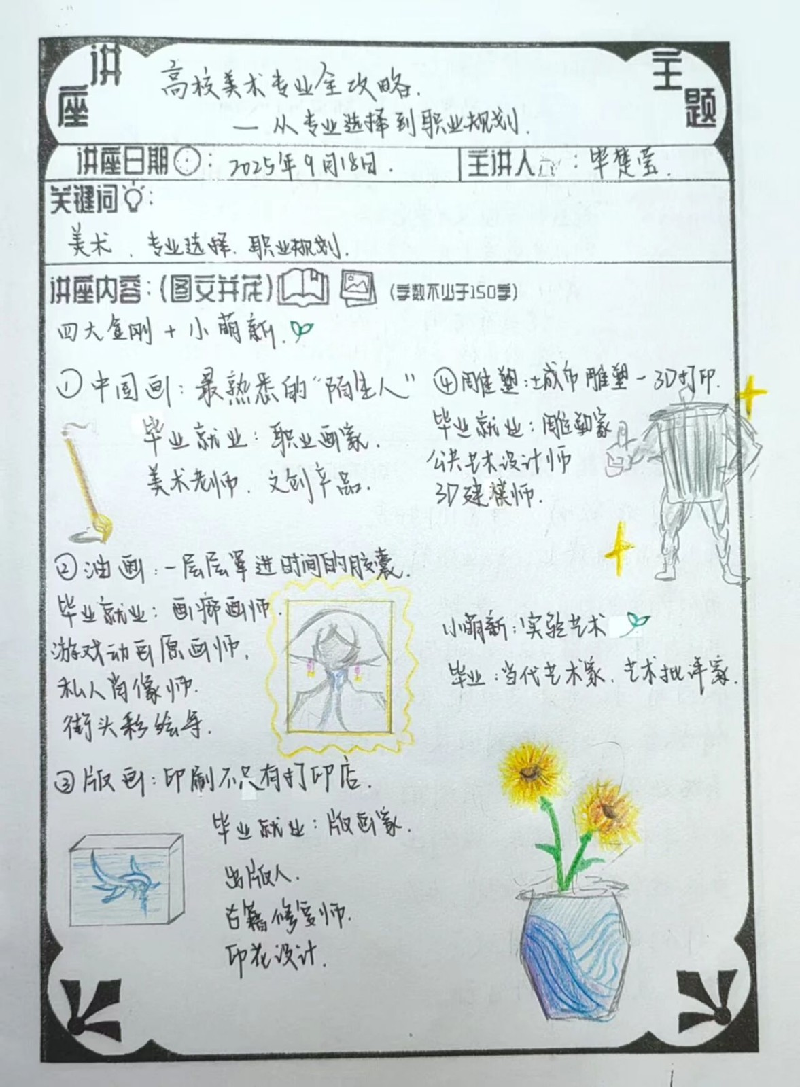 讲座主题
高校美术专业全攻略.
— 从专业选择到职业规划.
讲座日期：2025年9月18日.
主讲人：毕楚莹.
关键词：
美术、专业选择、职业规划.
讲座内容：(图文并茂) (字数不少于150字)
四大金刚 + 小萌新.
①中国画：最熟悉的“陌生人”
毕业就业：职业画家.
美术老师. 文创产品.
②油画：一层层罩进时间的胶囊.
毕业就业：画廊画师.
游戏动画原画师.
私人肖像师.
街头彩绘等.
③版画：印刷不只有打印店.
毕业就业：版画家.
出版人.
古籍修复师.
印花设计.
④雕塑：城市雕塑－3D打印.
毕业就业：雕塑家
公共艺术设计师
3D建模师.
小萌新：实验艺术
毕业：当代艺术家、艺术批评家.